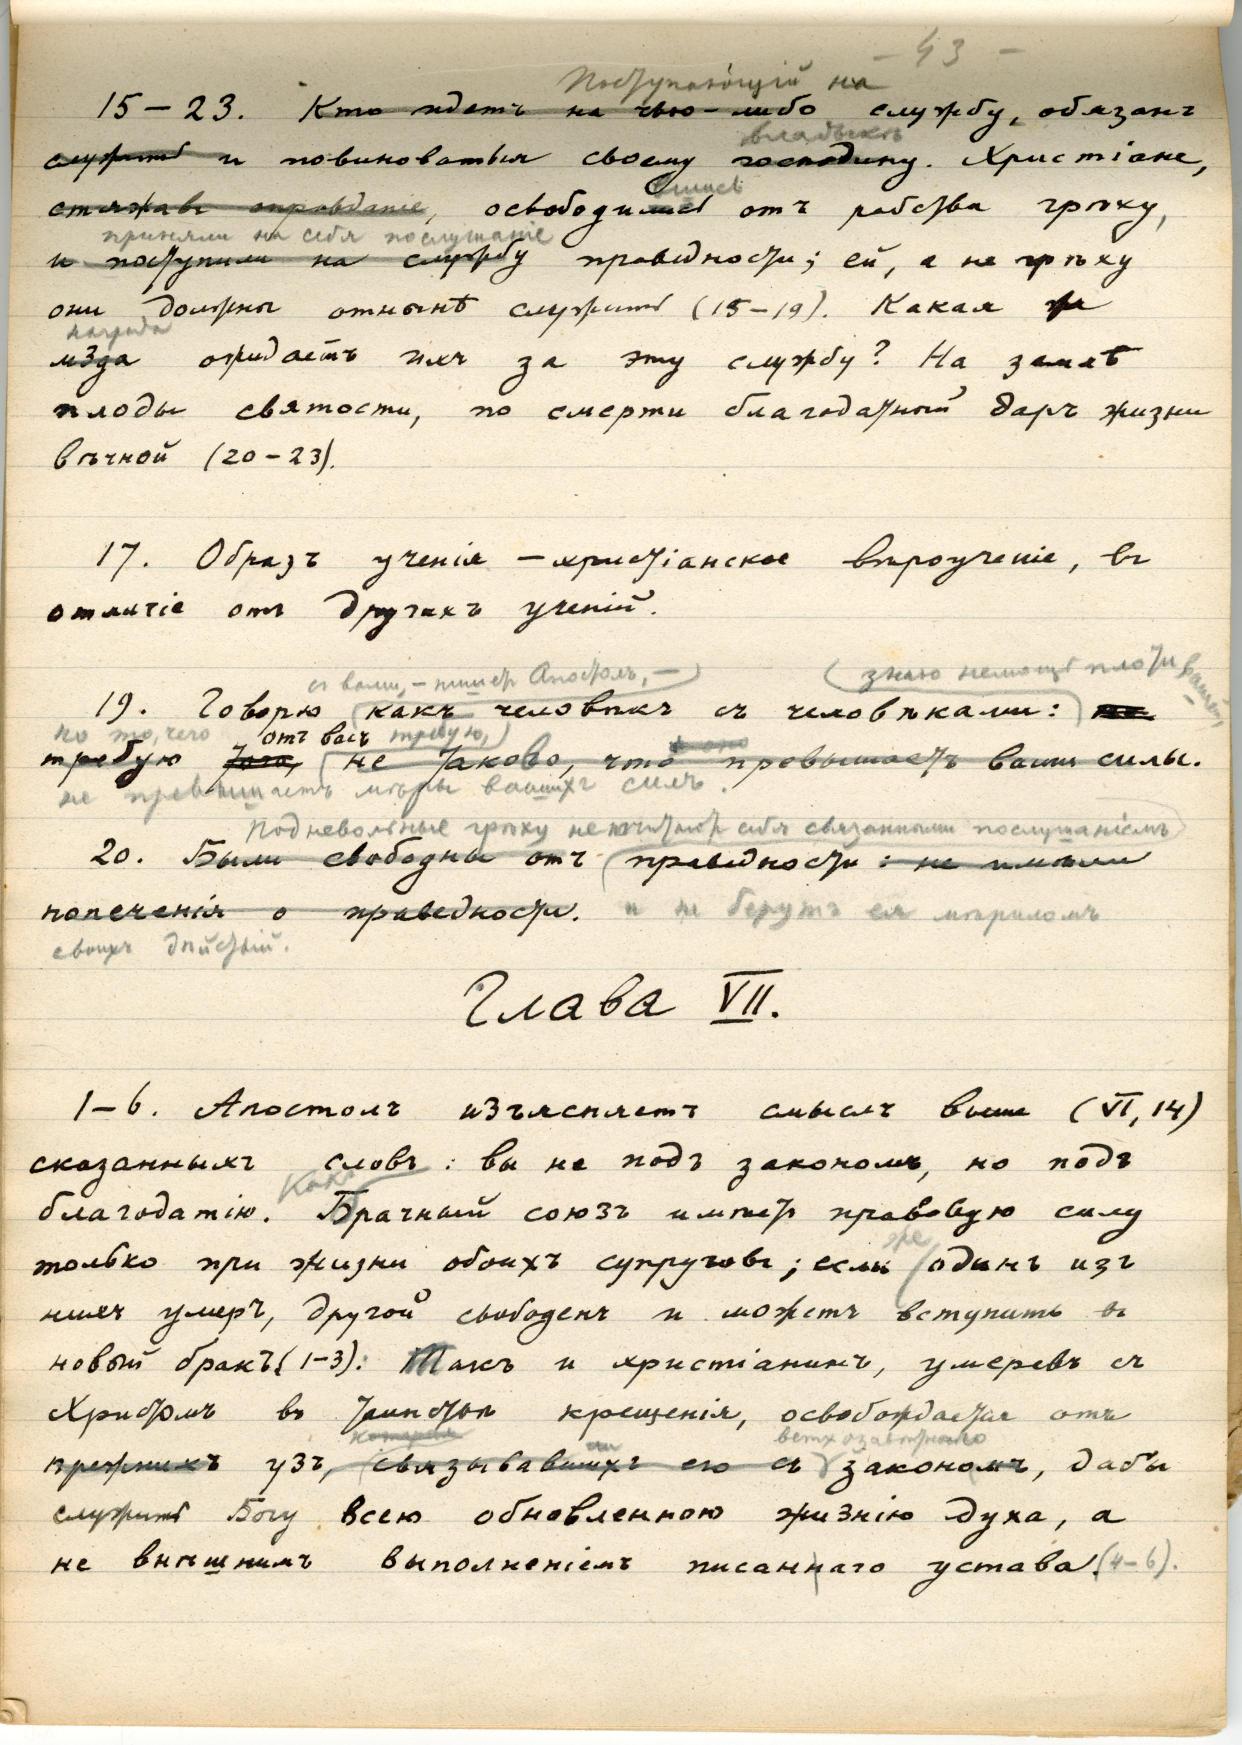 - 43 -
Поступающій на
15 – 23. Кто идетъ на чью-либо службу, обязанъ
владыкѣ
служить и повиноваться своему господину. Христіане,
стяжавъ оправданіе, освободились отъ рабства грѣху,
приняли на себя послушаніе
и поступили на службу праведности; ей, а не грѣху
они должны отнынѣ служить (15–19). Какая же
награда
мзда ожидаетъ ихъ за эту службу? На землѣ
плоды святости, по смерти благодатный даръ жизни
вѣчной (20–23).
17. Образъ ученія – христіанское вѣроученіе, въ
отличіе отъ другихъ ученій.
съ вами, – пишетъ Апостолъ, – знаю немощь плоти вашей,
19. Говорю какъ человѣкъ съ человѣками: но
но то, чего отъ васъ требую,
требую того, не таково, что оно превышаетъ ваши силы.
не превышаетъ мѣры вашихъ силъ.
Подневольные грѣху не считаютъ себя связанными послушаніемъ
20. Были свободны отъ праведности: не имѣли
попеченія о праведности. и не берутъ ея мѣриломъ
своихъ дѣйствій.
Глава VII.
1–6. Апостолъ изъясняетъ смыслъ выше (VI, 14)
сказанныхъ словъ: вы не подъ закономъ, но подъ
благодатію. Какъ Брачный союзъ имѣетъ правовую силу
же
только при жизни обоихъ супруговъ; если одинъ изъ
нихъ умеръ, другой свободенъ и можетъ вступить въ
новый бракъ (1–3): Такъ и христіанинъ, умеревъ съ
Христомъ въ таинствѣ крещенія, освобождается отъ
ветхозавѣтнаго
прежнихъ узъ, связывавшихъ его съ закономъ, дабы
служить Богу всею обновленною жизнію духа, а
не внѣшнимъ выполненіемъ писаннаго устава (4–6).